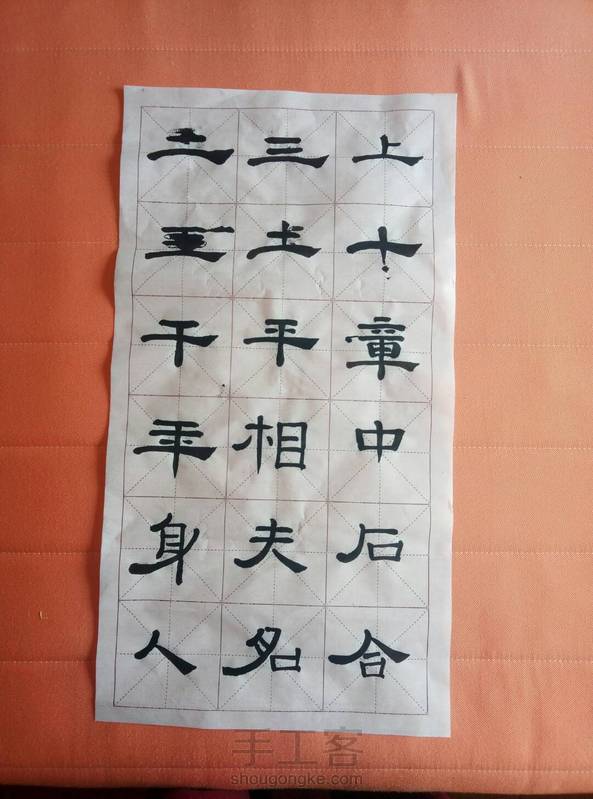 上十章中石合
三土平相夫名
干身人
手工客
shougongke.com